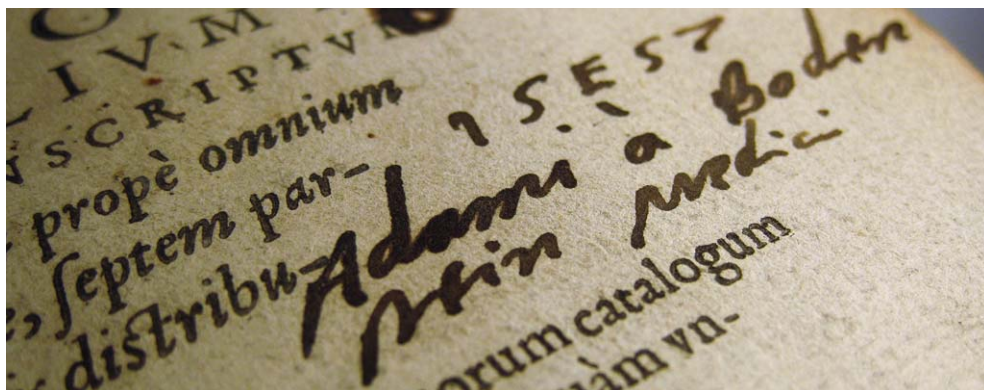 O
LIVM
NSCRIPTVM
propè omnium
ſeptem par-
distribu-
1SES7
Adami à Boden
stein medici
orum catalogum
quàm vn-